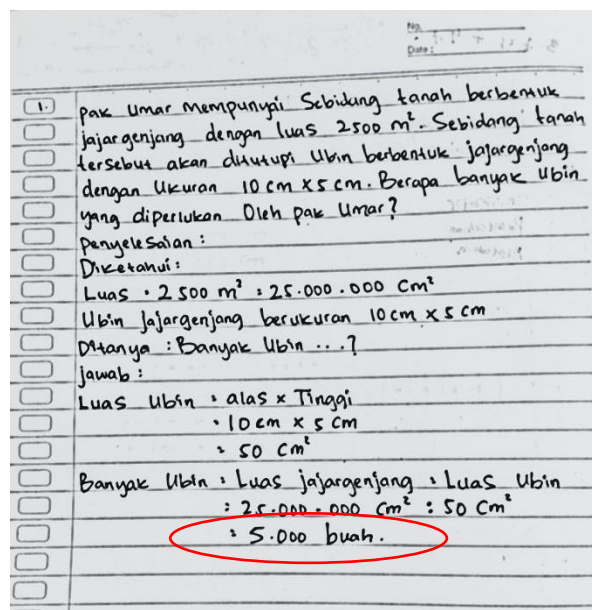 No.
Date:
1.
Pak Umar mempunyai Sebidang tanah berbentuk
jajargenjang dengan luas 2500 m². Sebidang tanah
tersebut akan ditutupi Ubin berbentuk jajargenjang
dengan Ukuran 10 cm x 5 cm. Berapa banyak Ubin
yang diperlukan Oleh pak Umar?
penyelesaian :
Diketahui :
Luas : 2 500 m² : 25.000.000 Cm²
Ubin jajargenjang berukuran 10 cm x 5 cm
Ditanya : Banyak Ubin ...?
jawab :
Luas Ubin : alas x Tinggi
: 10 cm x 5 cm
: 50 Cm²
Banyak Ubin : Luas jajargenjang : Luas Ubin
: 25.000.000 Cm² : 50 Cm²
: 5.000 buah.